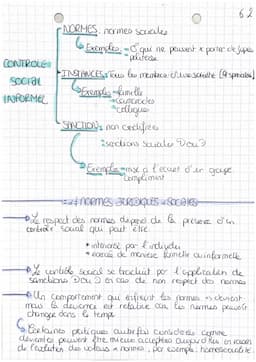 6.2
NORMES: normes sociales
Exemples: - ♂ qui ne peuvent porter de jupe
- politesse
CONTRÔLE
SOCIAL
INFORMEL
INSTANCES: Tous les membres d'une société
Exemple - famille
- camarades
- collègues
SANCTION: non codifiées
: sanctions sociales ⊖ ou ⊕
Exemple - mise à l'écart d'un groupe
- compliment
NORMES JURIDIQUES - SOCIALES
Le respect des normes dépend de la présence d'un
contrôle social qui peut être
• intériorisé par l'individu
• exercé de manière formelle ou informelle
Le contrôle social se traduit par l'application de
sanctions ⊖ ou ⊕ en cas de non respect des normes
Un comportement qui enfreint les normes = déviant
mais la déviance est relative car les normes peuvent
changer dans le temps
Certaines pratiques autrefois considérées comme
déviantes peuvent être mieux acceptées aujourd'hui en raison
de l'évolution des valeurs + normes, par exemple: homosexualité